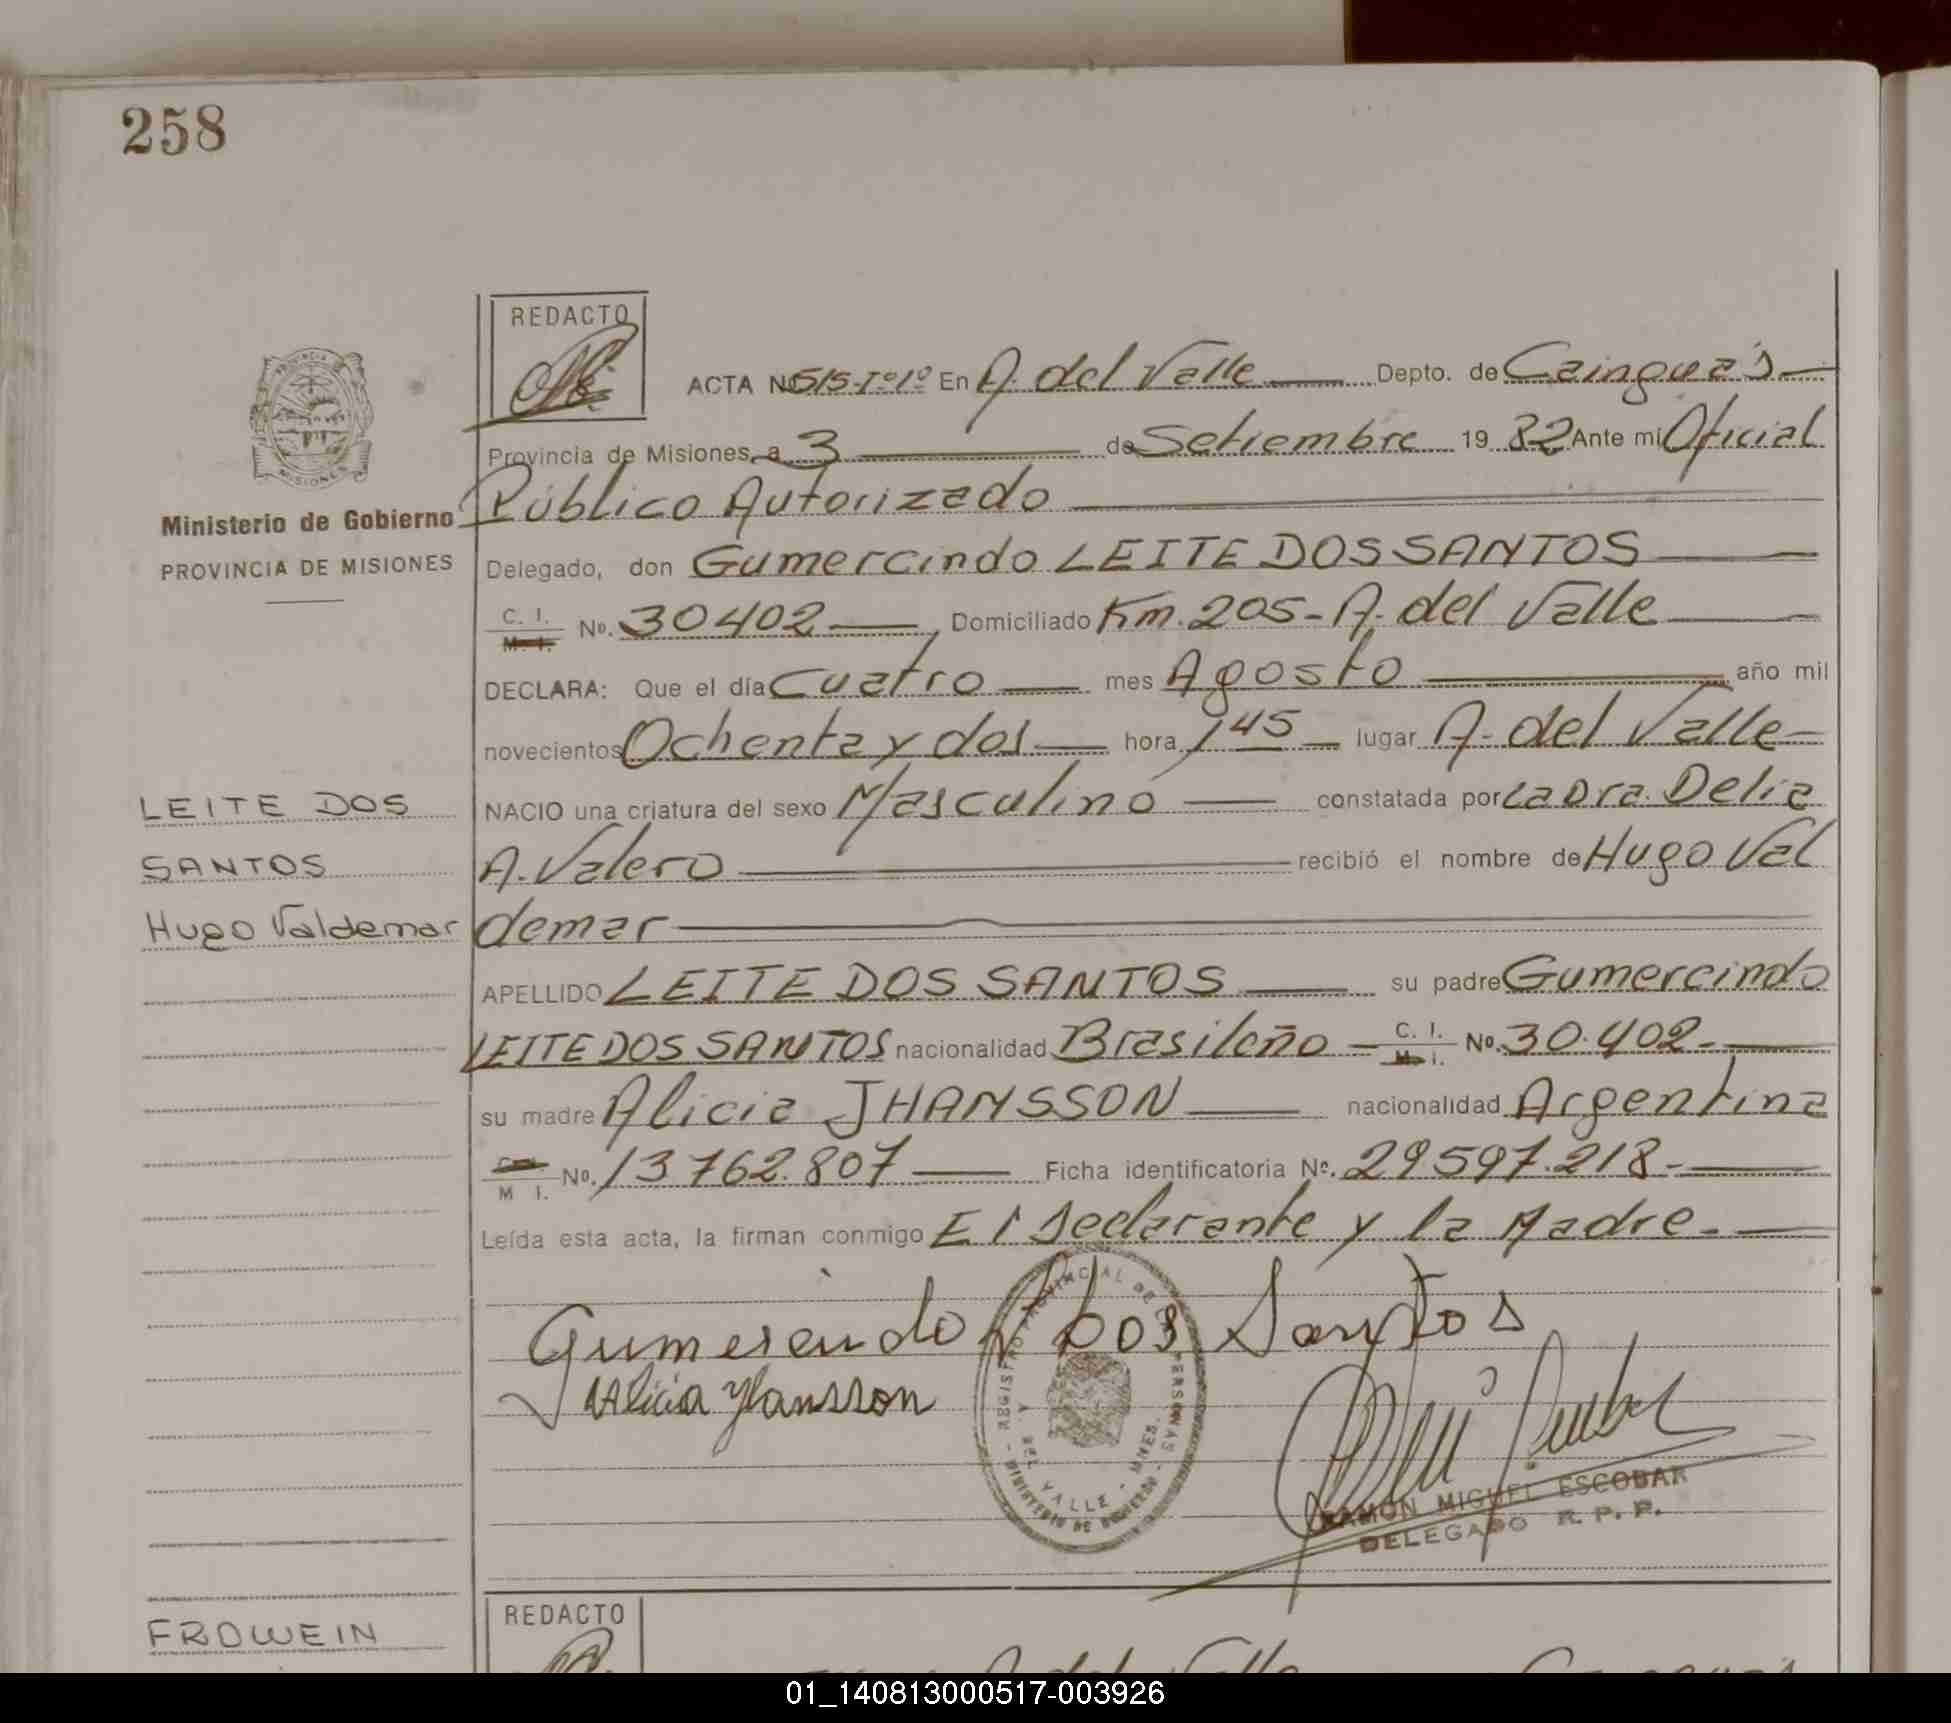 258
REDACTO
ACTA Nº 515-Tº1º En A. del Valle Depto. de Cainguás
Provincia de Misiones, a 3 de Setiembre 1982 Ante mi Oficial
Público Autorizado
Ministerio de Gobierno
PROVINCIA DE MISIONES
Delegado, don Gumercindo LEITE DOS SANTOS
C. I. M. I. No. 30402, Domiciliado Km. 205- A. del Valle
DECLARA: Que el día Cuatro mes Agosto año mil
novecientos Ochenta y dos hora 1 45 lugar A. del Valle
LEITE DOS
NACIO una criatura del sexo Masculino constatada por La Dra. Delia
SANTOS
A. Valero recibió el nombre de Hugo Val
Hugo Valdemar
demar
APELLIDO LEITE DOS SANTOS su padre Gumercindo
LEITE DOS SANTOS nacionalidad Brasileño C. I. M. I. No. 30.402.
su madre Alicia JHANSSON nacionalidad Argentina
C. I. M I. No. 13.762.807 Ficha identificatoria No. 29597.218.
Leída esta acta, la firman conmigo El declarante y la Madre.
Gumersindo L Dos Santos
Alicia Jhansson
REGISTRO PROVINCIAL DE LAS PERSONAS
A. DEL VALLE - MNES.
MINISTERIO DE GOBIERNO
RAMON MIGUEL ESCOBAR
DELEGADO R. P. P.
REDACTO
FROWEIN
A. del Valle Cainguás
01_140813000517-003926